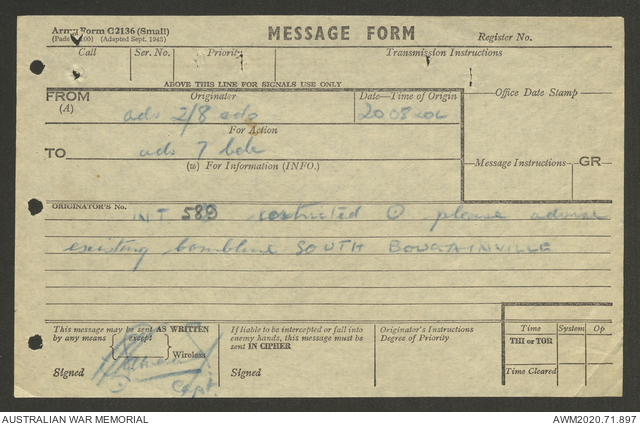 Army Form C2136 (Small)
(Adapted Sept. 1945)
MESSAGE FORM
Register No.
Call
Ser. No.
Priority
Transmission Instructions
ABOVE THIS LINE FOR SIGNALS USE ONLY
FROM
(A)
Originator
Date—Time of Origin
Office Date Stamp
adv 2/8
For Action
TO
adv 7 bde
(w) For Information (INFO.)
Message Instructions
GR
ORIGINATOR'S No.
INT restricted please advise
existing bombline SOUTH BOUGAINVILLE
This message may be sent AS WRITTEN
by any means
except
Wireless
Signed
Capt.
If liable to be intercepted or fall into
enemy hands, this message must be
sent IN CIPHER
Signed
Originator's Instructions
Degree of Priority
Time
System
Op
THI or TOR
Time Cleared
AUSTRALIAN WAR MEMORIAL
AWM2020.71.897